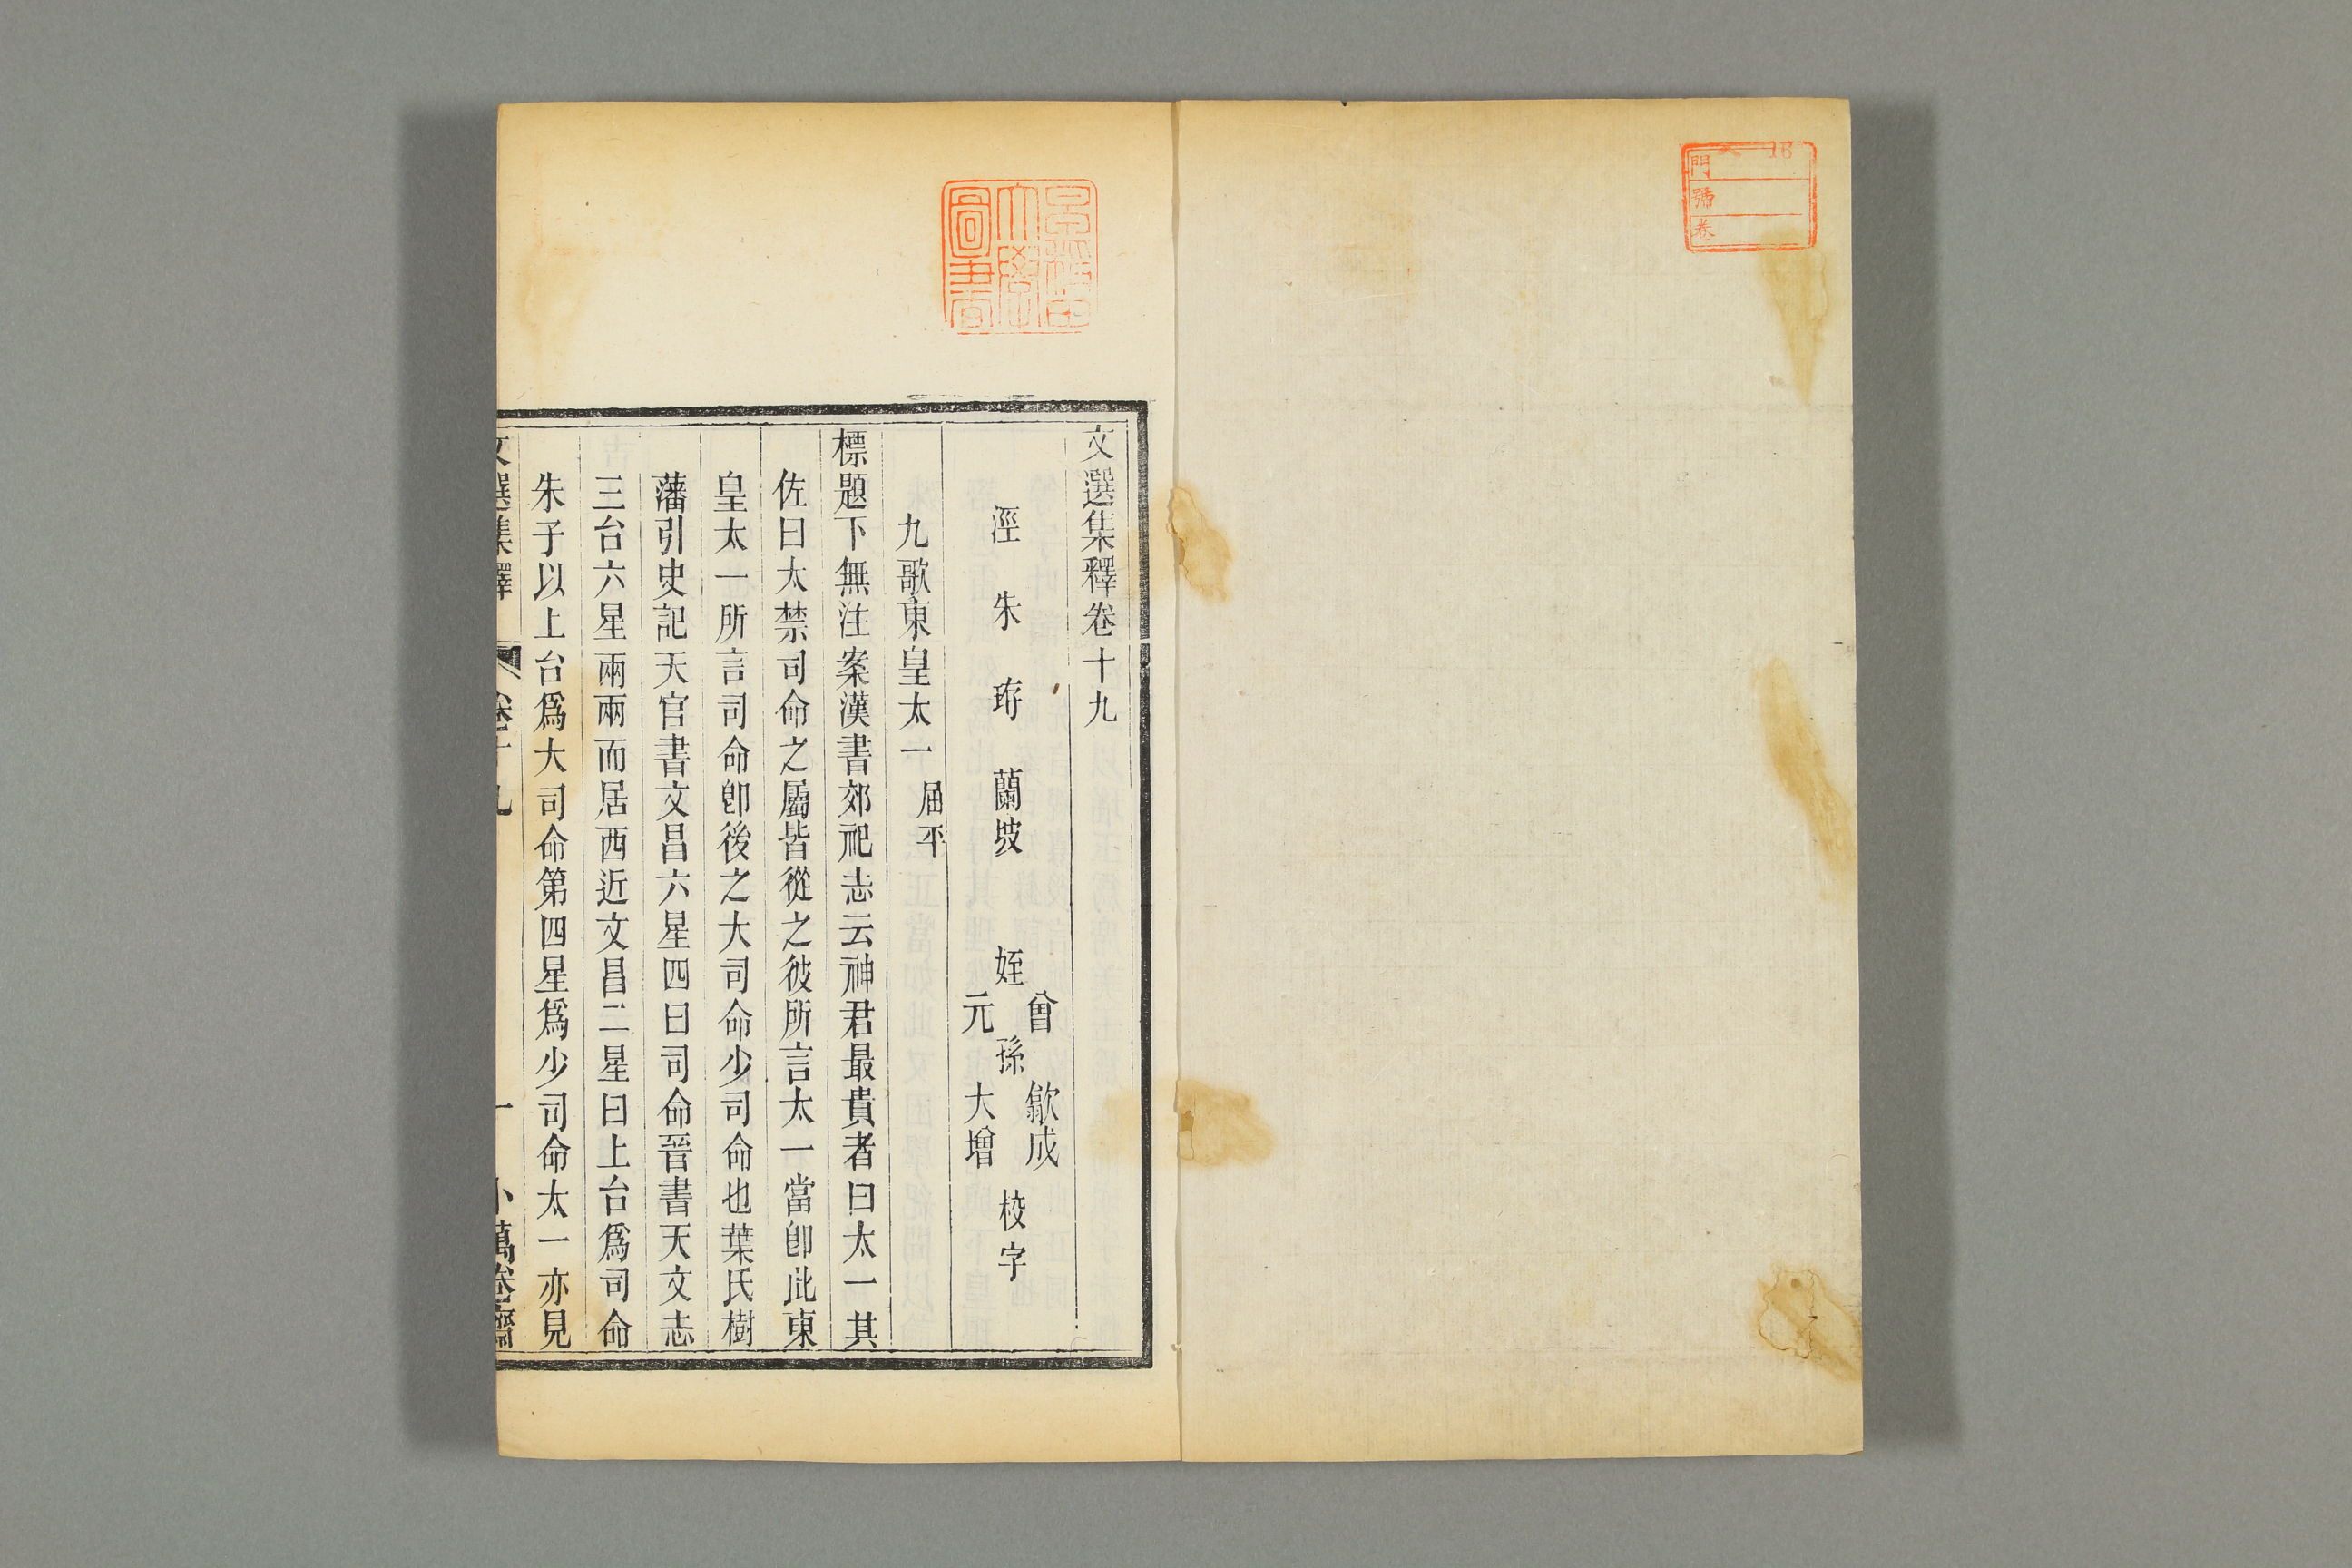 門
號
卷
文選集釋卷十九
涇 朱 珔 蘭坡 姪曾孫歙成 校字
元 大增
九歌東皇太一 屈平
標題下無注案漢書郊祀志云神君最貴者曰太一其
佐曰太禁司命之屬皆從之彼所言太一當卽此東
皇太一所言司命卽後之大司命少司命也葉氏樹
藩引史記天官書文昌六星四曰司命晉書天文志
三台六星兩兩而居西近文昌二星曰上台爲司命
朱子以上台爲大司命第四星爲少司命太一亦見
文選集釋 卷十九 一 小萬卷齋
大學
圖書